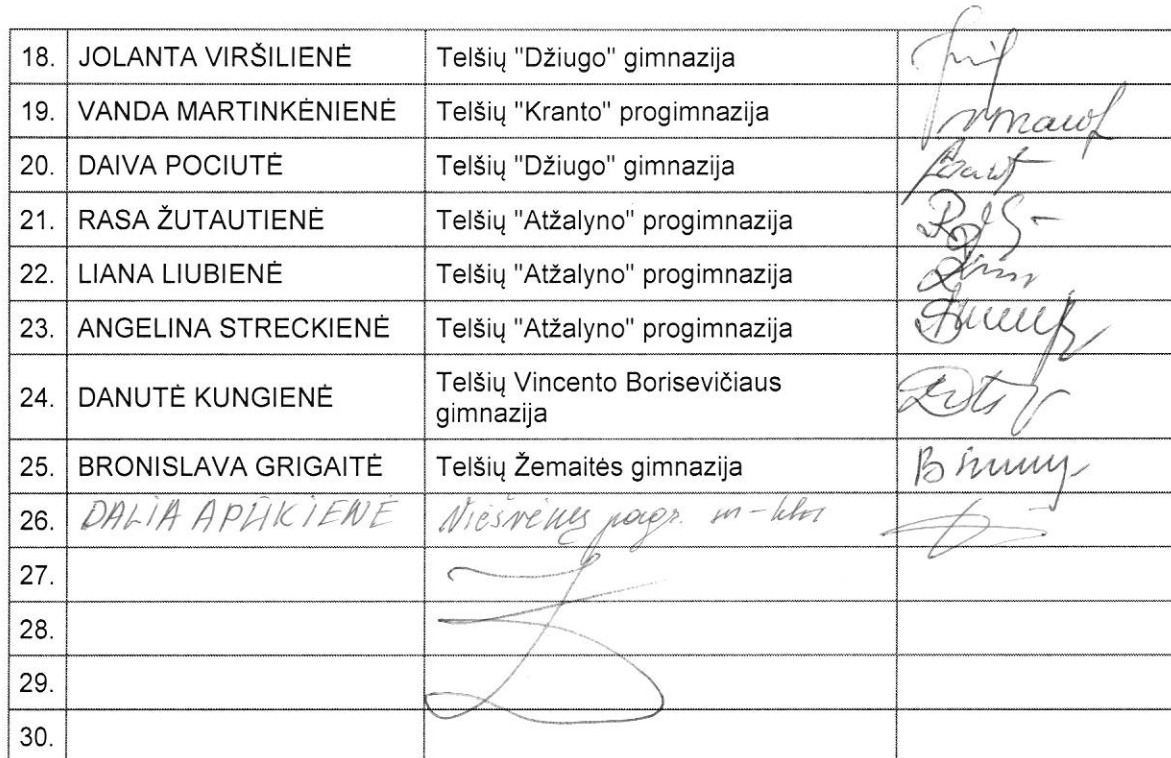 18. JOLANTA VIRŠILIENĖ Telšių "Džiugo" gimnazija
19. VANDA MARTINKĖNIENĖ Telšių "Kranto" progimnazija
20. DAIVA POCIUTĖ Telšių "Džiugo" gimnazija
21. RASA ŽUTAUTIENĖ Telšių "Atžalyno" progimnazija
22. LIANA LIUBIENĖ Telšių "Atžalyno" progimnazija
23. ANGELINA STRECKIENĖ Telšių "Atžalyno" progimnazija
24. DANUTĖ KUNGIENĖ Telšių Vincento Borisevičiaus
gimnazija
25. BRONISLAVA GRIGAITĖ Telšių Žemaitės gimnazija
26. DALIA pagr.
27.
28.
29.
30.